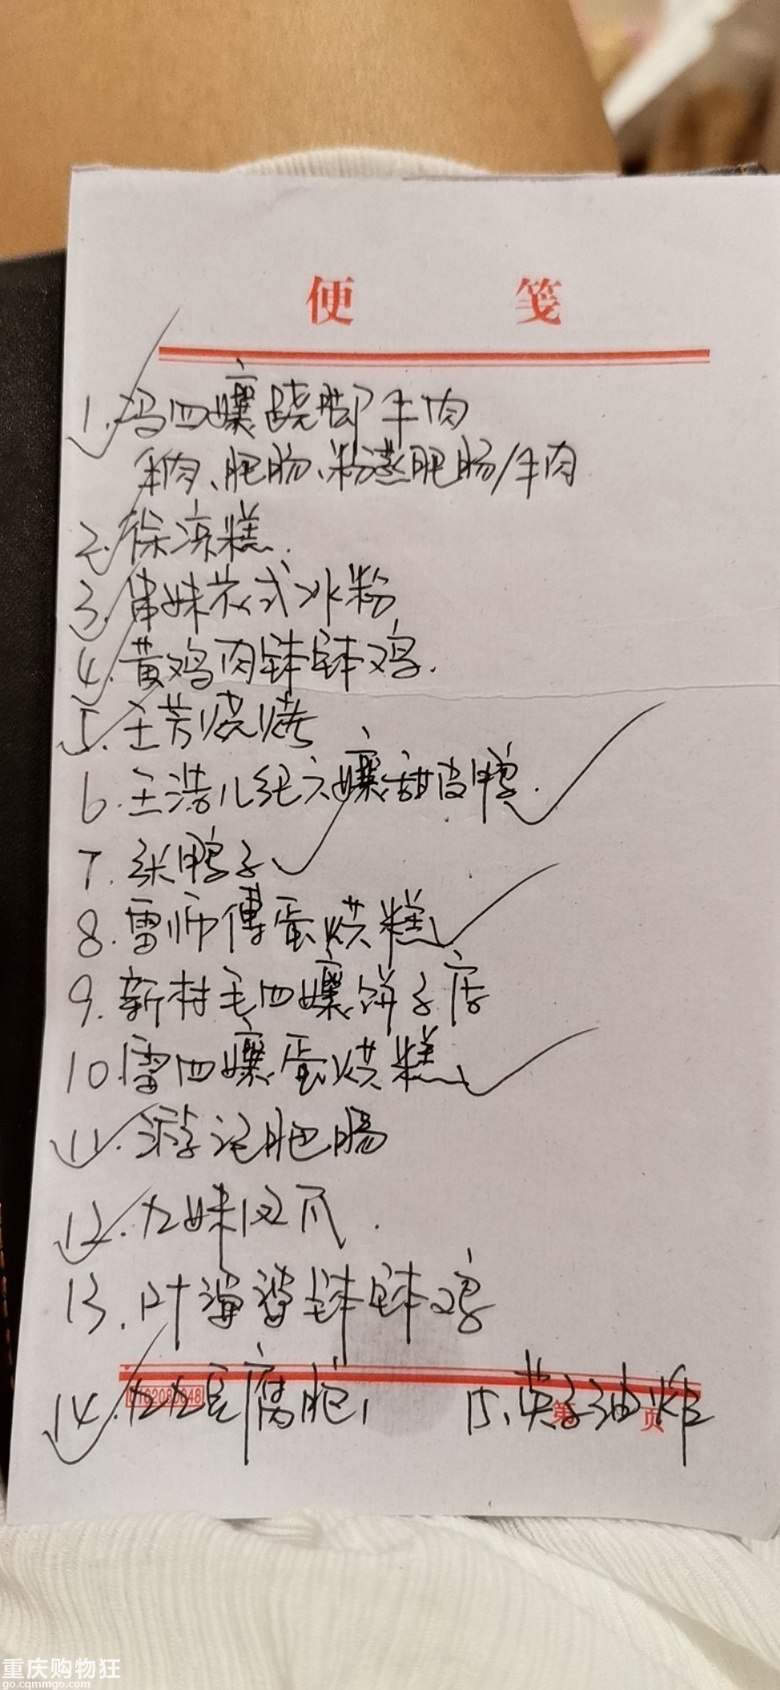 便 笺
1. 冯四孃跷脚牛肉
牛肉、肥肠、粉蒸肥肠/牛肉
2. 徐凉糕.
3. 串妹花式冰粉
4. 黄鸡肉钵钵鸡.
5. 王芳烧烤
6. 王浩儿纪六孃甜皮鸭.
7. 张鸭子
8. 雷师傅蛋烘糕
9. 新村毛四孃饼子店
10. 雷四孃蛋烘糕
11. 游记肥肠
12. 九妹凤爪.
13. 叶婆婆钵钵鸡
14. 九九豆腐脑, 15. 英子油炸
第 页
重庆购物狂
go.cqmmgo.com